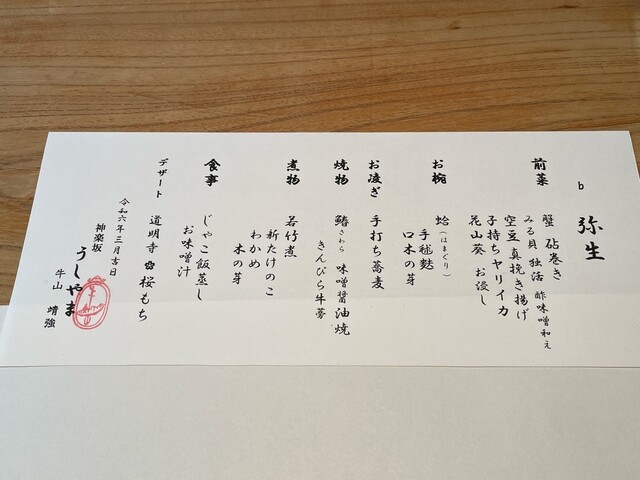 弥生
b
前菜
蟹 砧巻き
みる貝 独活 酢味噌和え
空豆真挽き揚げ
子持ちヤリイカ
花山葵 お浸し
お椀
蛤(はまぐり)
手毬麩
口木の芽
お凌ぎ
手打ち蕎麦
焼物
鰆さわら 味噌醤油焼
きんぴら牛蒡
煮物
若竹煮
新たけのこ
わかめ
木の芽
食事
じゃこ飯蒸し
お味噌汁
デザート
道明寺 桜もち
令和六年三月吉日
神楽坂
うしやま
牛山 靖強